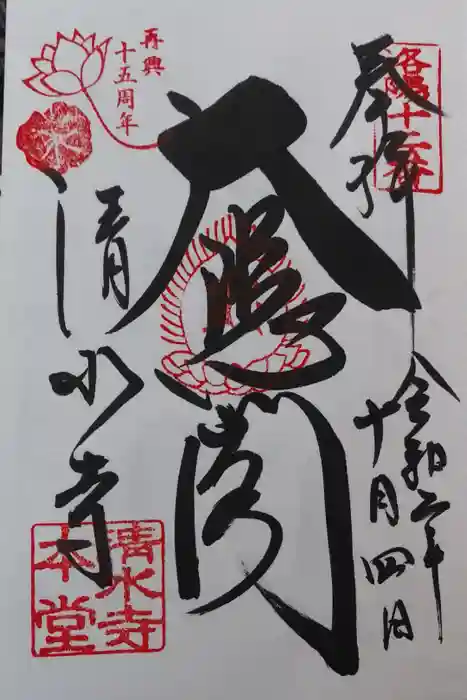 奉拝
洛陽十二番
令和二年
十月四日
大悲閣
再興
十五周年
清水寺
清水寺
本堂